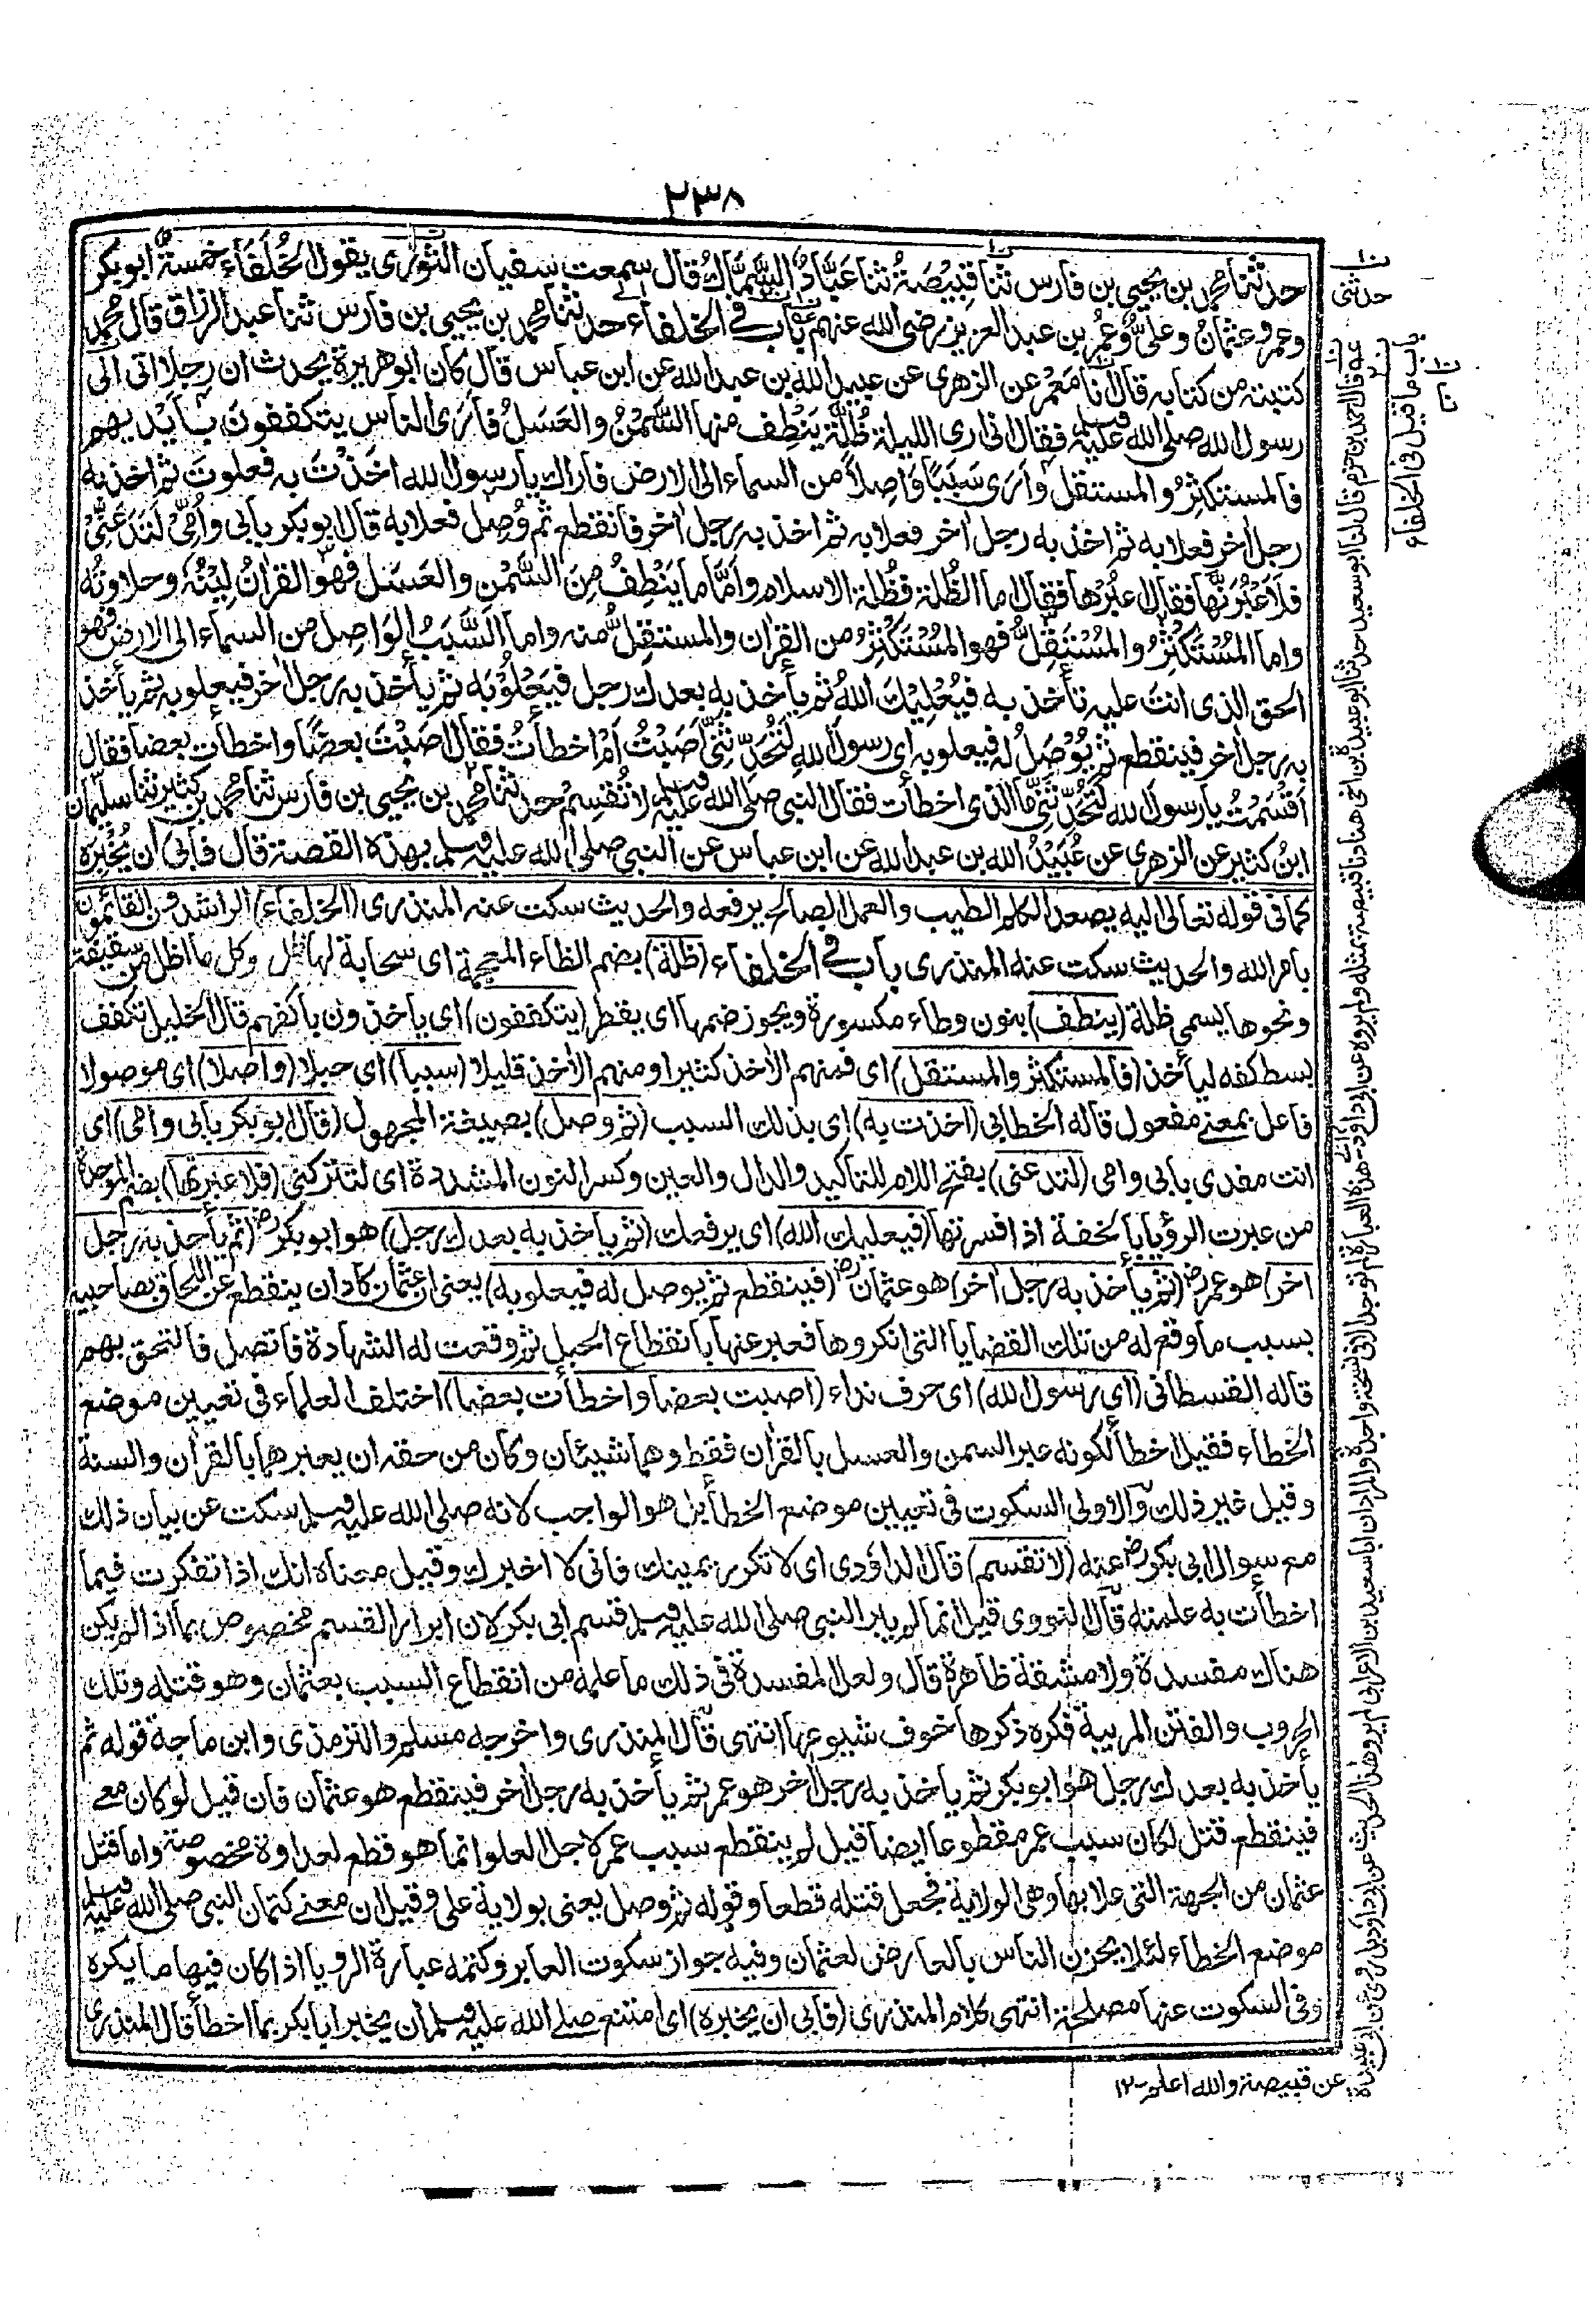 ٢٣٨
حدثنا محمد بن يحيى بن فارس ثنا قَبِيْصَةُ ثنا عَبَّادُ السَّمَّاكُ قال سمعت سفيان الثورى يقول الخُلَفَاء خمسة ابو بكر
وعمر وعثمان وعلى وعمر بن عبد العزيز رضى الله عنهم باب فى الخلفاء حدثنا محمد بن يحيى بن فارس ثنا عبد الرزاق قال محمد
كتبته من كتابه قال انا مَعْمر عن الزهرى عن عبيد الله بن عبد الله عن ابن عباس قال كان ابو هريرة يحدث ان رجلا اتى الى
رسول الله صلى الله عليه وسلم فقال انى ارى الليلة ظُلَّة يَنْطِف منها السَّمْنُ والعَسَلُ فارَى الناس يتكففون بأيديهم
فالمستكثِرُ والمستقل وَاَرَى سَبَبًا وَاصِلًا من السماء الى الارض فاراك يا رسول الله اخَذْتَ به فعلوتَ ثم اخذ به
رجل اخر فعلا به ثم اخذ به رجل اخر فعلا به ثم اخذ به رجل اخر فانقطع ثم وُصِل فعلا به قال ابو بكر بابى واُمِّى لَتَدَعَنِّى
فلَاَعْبُرَنَّها فقال اعْبُرْها فقال اما الظُلة فظُلة الاسلام واَمَّا ما يَنْطِفُ مِنَ السَّمْن والعَسَل فهو القرانُ لِيْنُه وحلاوتُه
واما المُسْتَكْثِرُ والمُسْتَقِلُّ فهو المُسْتَكْثِرُ من القران والمستقِلُّ منه واما السَّبَبُ الوَاصِل من السماء الى الارض فهو
الحق الذى انتَ عليه تأخذ به فيُعْلِيْكَ اللهُ ثم يأخذ به بعدك رجل فيَعْلُوْ بَه ثم يأخذ به رجل اخر فيعلو به ثم يأخذ
به رجل اخر فينقطع ثم يُوْصَلُ له فيعلو به اى رسولَ اللهِ لَتُحَدِّثَنِّى اَصَبْتُ اَمْ اخطأتُ فقال اصَبْتَ بعضًا واخطأت بعضا فقال
اَقْسَمْتُ يا رسول الله لَتُحَدِّثَنِّى ما الذى اخطأت فقال النبى صلى الله عليه وسلم لا تُقْسِمْ حدثنا محمد بن يحيى بن فارس ثنا محمد بن كثير ثنا سليمان
ابنُ كثير عن الزهرى عن عُبَيْدُ الله بن عبد الله عن ابن عباس عن النبى صلى الله عليه وسلم بهذه القصة قال فابى ان يُخْبِرَه
كما فى قوله تعالى اليه يصعد الكلم الطيب والعمل الصالح يرفعه والحديث سكت عنه المنذرى (الخلفاء) الراشدون القائمون
بامر الله والحديث سكت عنه المنذرى باب فى الخلفاء (ظلة) بضم الظاء المعجمة اى سحابة لها ظل وكل ما اظل من سقيفة
ونحوها يسمى ظلة (ينطف) بنون وطاء مكسورة ويجوز ضمها اى يقطر (يتكففون) اى ياخذون باكفهم قال الخليل تكفف
بسط كفه ليأخذ (فالمستكثر والمستقل) اى فمنهم الاخذ كثيرا ومنهم الاخذ قليلا (سببا) اى حبلا (واصلا) اى موصولا
فاعل بمعنى مفعول قاله الخطابى (اخذت به) اى بذلك السبب (ثم وصل) بصيغة المجهول (قال ابو بكر بابى وامى) اى
انت مفدى بابى وامى (لتدعنى) بفتح اللام للتأكيد والدال والعين وكسر النون المشددة اى لتتركنى (فلاعبرنها) بضم الموحدة
من عبرت الرؤيا بالخفة اذا فسرتها (فيعليك الله) اى يرفعك (ثم ياخذ به بعدك رجل) هو ابو بكر رض (ثم ياخذ به رجل
اخر) هو عمر رض (ثم يأخذ به رجل اخر) هو عثمان رض (فينقطع ثم يوصل له فيعلو به) يعنى ان عثمان كاد ان ينقطع عن اللحاق بصاحبيه
بسبب ما وقع له من تلك القضايا التى انكروها فعبر عنها بانقطاع الحبل ثم وقعت له الشهادة فاتصل فالتحق بهم
قاله القسطلانى (اى رسول الله) اى حرف نداء (اصبت بعضا واخطأت بعضا) اختلف العلماء فى تعيين موضع
الخطاء فقيل اخطأ لكونه عبر السمن والعسل بالقران فقط وهما شيئان وكان من حقه ان يعبرهما بالقران والسنة
وقيل غير ذلك والاولى السكوت فى تعيين موضع الخطأ بل هو الواجب لانه صلى الله عليه وسلم سكت عن بيان ذلك
مع سوال ابى بكر رض عنه (لا تقسم) قال الداؤدى اى لا تكرر يمينك فانى لا اخبرك وقيل معناه انك اذا تفكرت فيما
اخطأت به علمته قال النووى قيل انما لم يبر النبى صلى الله عليه وسلم قسم ابى بكر لان ابرار القسم مخصوص بما اذا لم يكن
هناك مفسدة ولا مشقة ظاهرة قال ولعل المفسدة فى ذلك ما علمه من انقطاع السبب بعثمان وهو قتله وتلك
الحروب والفتن المريبة فكره ذكرها خوف شيوعها انتهى قال المنذرى واخرجه مسلم والترمذى وابن ماجة قوله ثم
يأخذ به بعدك رجل هو ابو بكر ثم ياخذ به رجل اخر هو عمر ثم ياخذ به رجل اخر فينقطع هو عثمان فان قيل لو كان معنى
فينقطع قتل لكان سبب عمر مقطوعا ايضا قيل لم ينقطع سبب عمر لاجل العلو انما هو قطع لعداوة مخصوصة واما قتل
عثمان من الجهة التى علا بها وهى الولاية فجعل قتله قطعا وقوله ثم وصل يعنى بولاية على وقيل ان معنى كتمان النبى صلى الله عليه وسلم
موضع الخطاء لئلا يحزن الناس بالعارض لعثمان وفيه جواز سكوت العابر وكتمه عبارة الرويا اذا كان فيها ما يكره
وفى السكوت عنها مصلحة انتهى كلام المنذرى (فابى ان يخبره) اى امتنع صلى الله عليه وسلم ان يخبر ابا بكر بما اخطأ قال المنذرى
حدثنى
باب ما قيل فى الخلفاء
نا
عه قال احمد بن حزم قال لنا ابو سعيد حدثنا ابو عبيدة بن اخى هناد نا قبيصة بمثله ولم يروه عن ابى داود - هذه العبارة لم توجد الا فى نسخة واحدة والمراد ان ابا سعيد بن الاعرابى لم يرو هذا الحديث عن ابى داود بل روى عن ابى عبيدة
عن قبيصة والله اعلم - ١٢